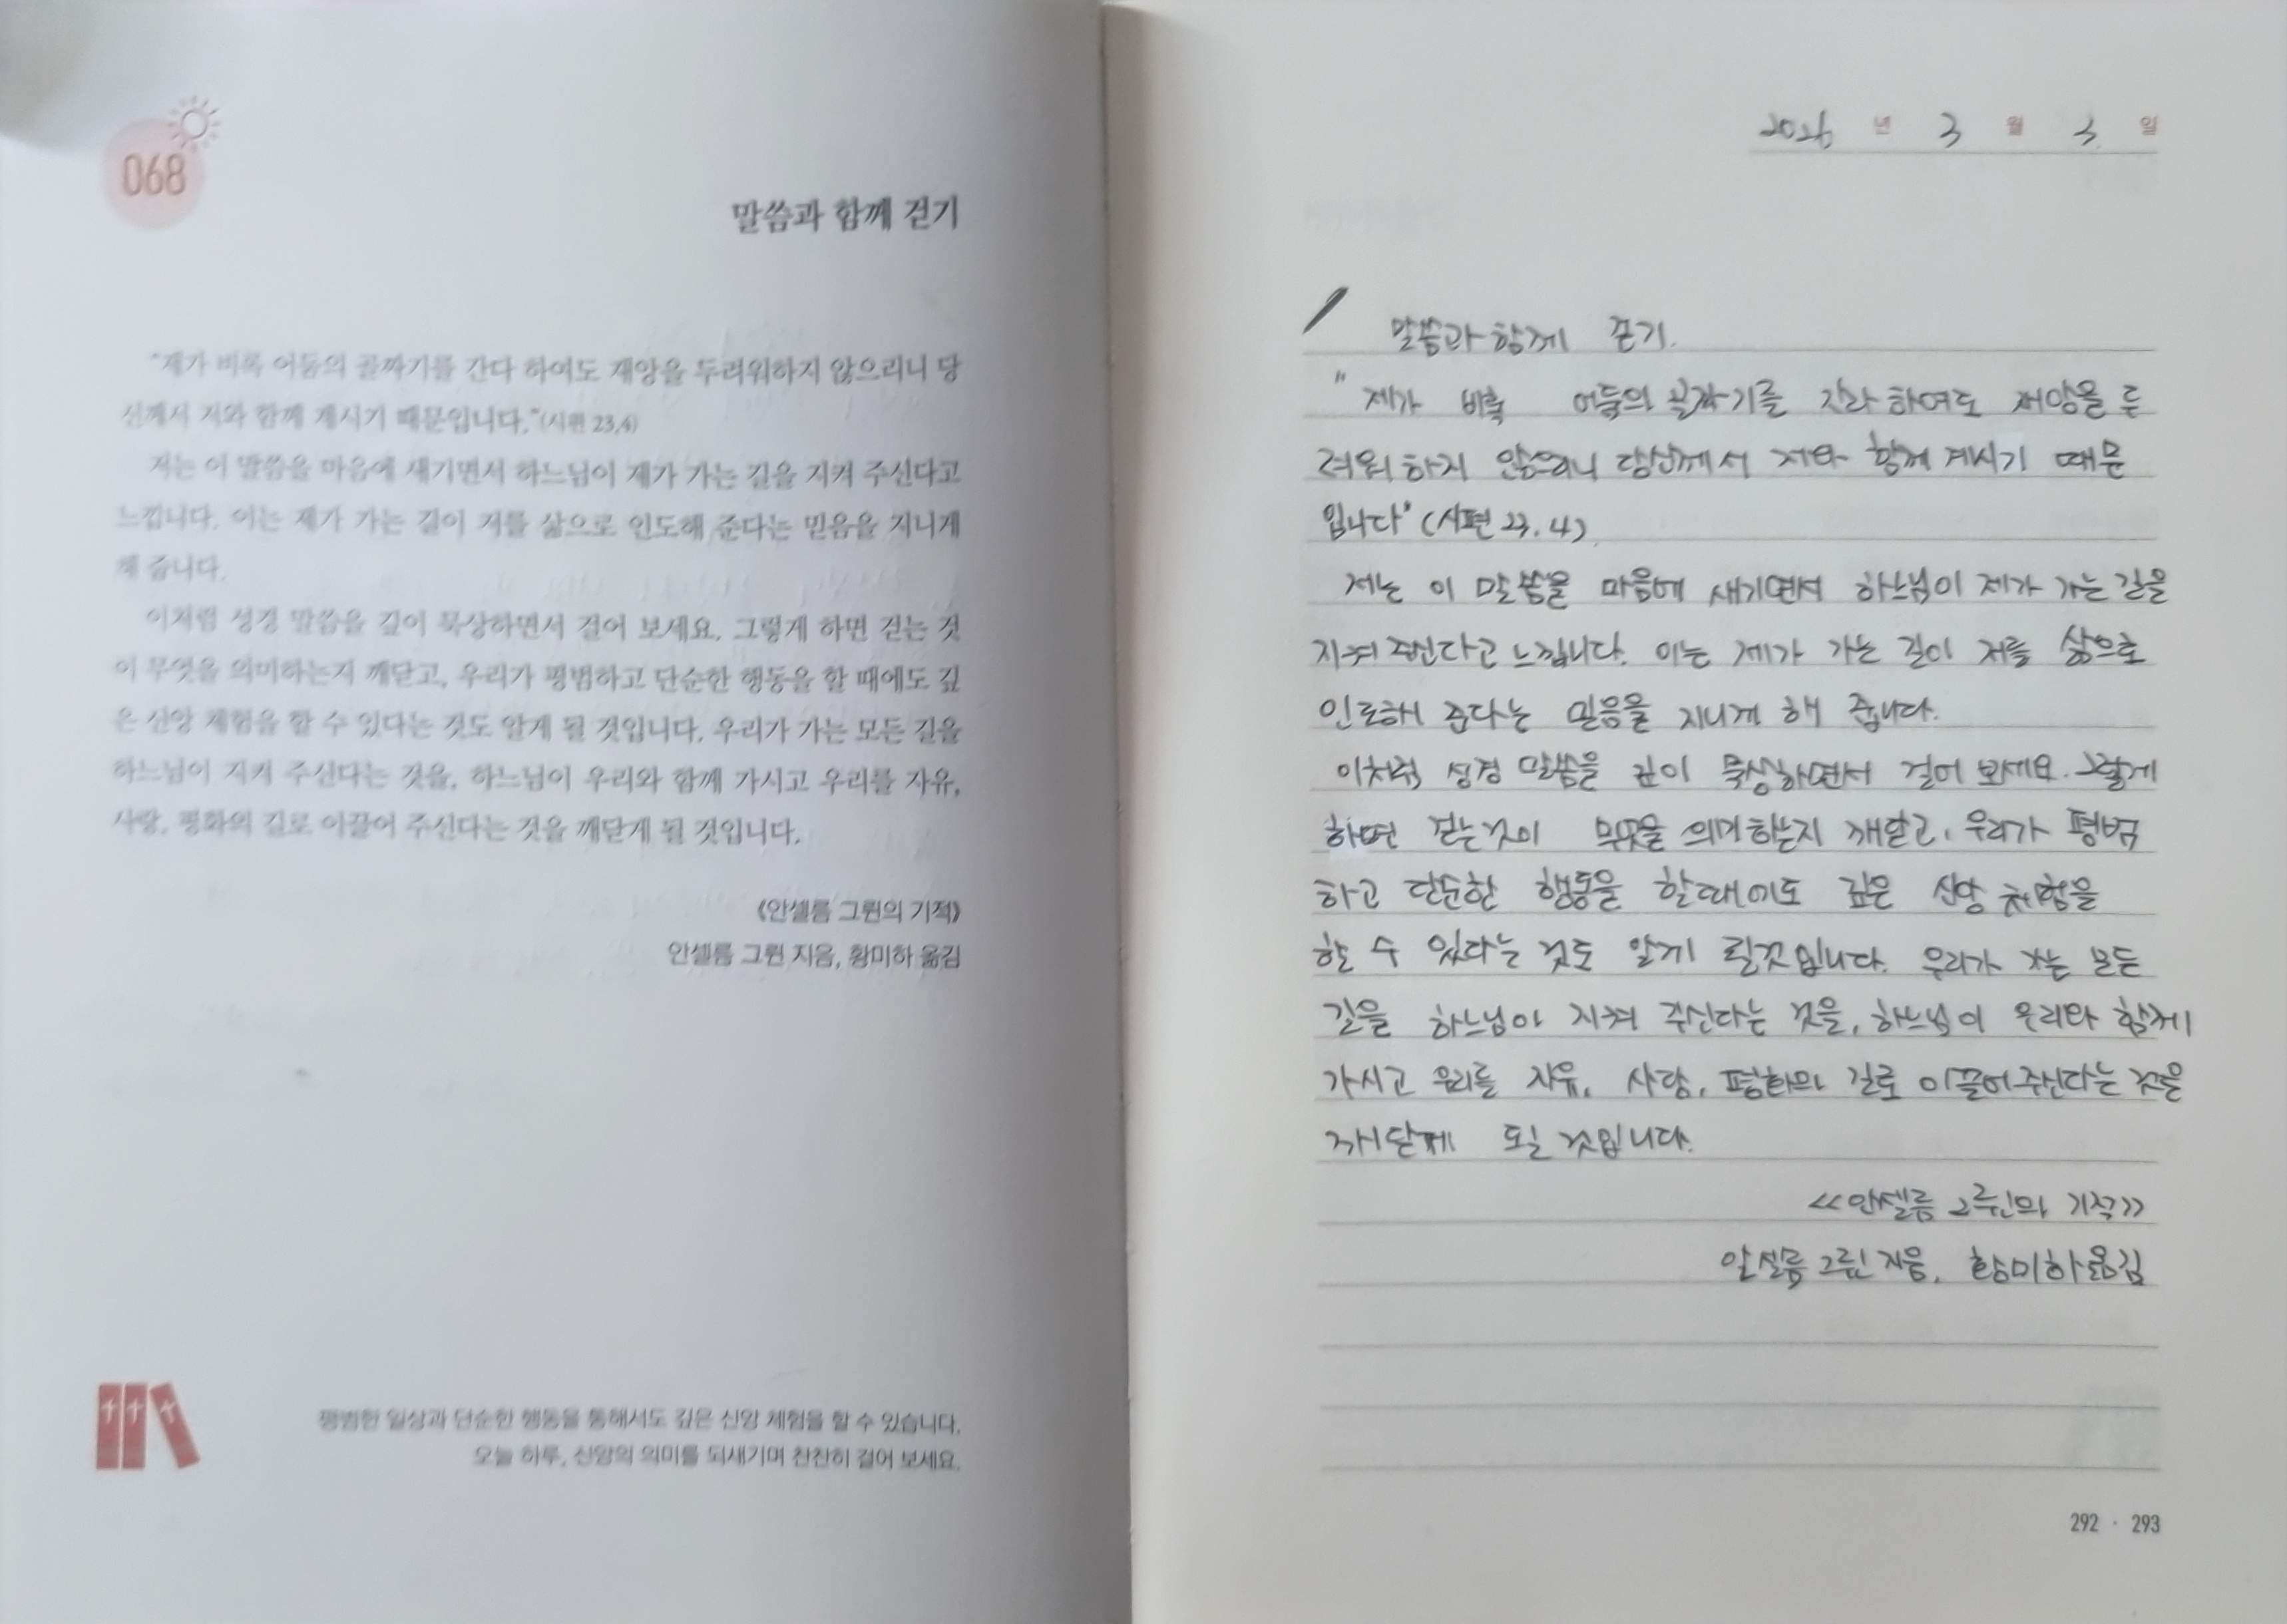 068
말씀과 함께 걷기
"제가 비록 어둠의 골짜기를 간다 하여도 재앙을 두려워하지 않으리니 당
신께서 저와 함께 계시기 때문입니다."(시편 23,4)
저는 이 말씀을 마음에 새기면서 하느님이 제가 가는 길을 지켜 주신다고
느낍니다. 이는 제가 가는 길이 저를 삶으로 인도해 준다는 믿음을 지니게
해 줍니다.
이처럼 성경 말씀을 깊이 묵상하면서 걸어 보세요. 그렇게 하면 걷는 것
이 무엇을 의미하는지 깨닫고, 우리가 평범하고 단순한 행동을 할 때에도 깊
은 신앙 체험을 할 수 있다는 것도 알게 될 것입니다. 우리가 가는 모든 길을
하느님이 지켜 주신다는 것을, 하느님이 우리와 함께 가시고 우리를 자유,
사랑, 평화의 길로 이끌어 주신다는 것을 깨닫게 될 것입니다.
《안셀름 그륀의 기적》
안셀름 그륀 지음, 황미하 옮김
평범한 일상과 단순한 행동을 통해서도 깊은 신앙 체험을 할 수 있습니다.
오늘 하루, 신앙의 의미를 되새기며 찬찬히 걸어 보세요.
2026 년 3 월 3 일
말씀과 함께 걷기.
"제가 비록 어둠의 골짜기를 간다 하여도 재앙을 두
려워하지 않으리니 당신께서 저와 함께 계시기 때문
입니다"(시편 23.4)
저는 이 말씀을 마음에 새기면서 하느님이 제가 가는 길을
지켜 주신다고 느낍니다. 이는 제가 가는 길이 저를 삶으로
인도해 준다는 믿음을 지니게 해 줍니다.
이처럼 성경 말씀을 깊이 묵상하면서 걸어 보세요. 그렇게
하면 걷는것이 무엇을 의미하는지 깨닫고, 우리가 평범
하고 단순한 행동을 할때에도 깊은 신앙 체험을
할 수 있다는 것도 알게 될것입니다. 우리가 가는 모든
길을 하느님이 지켜 주신다는 것을, 하느님이 우리와 함께
가시고 우리를 자유, 사랑, 평화의 길로 이끌어주신다는 것을
깨닫게 될 것입니다.
<<안셀름 그륀의 기적>>
안셀름 그륀 지음, 황미하 옮김
292 · 293